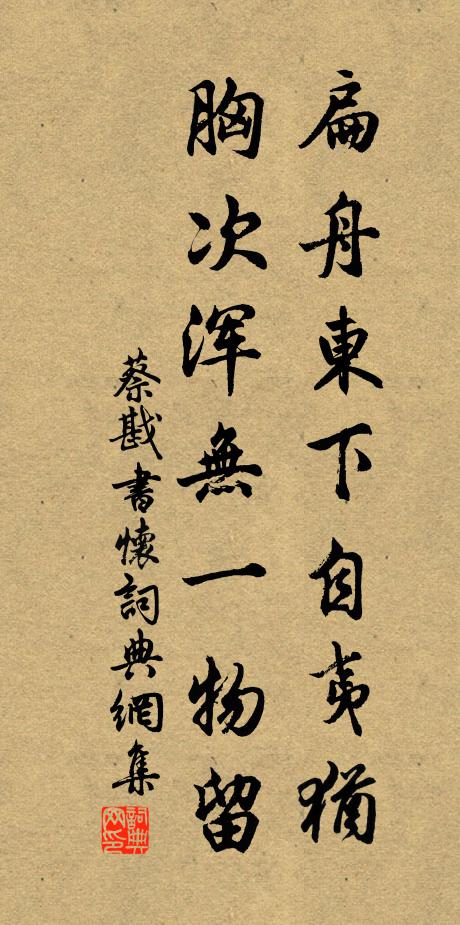 扁舟東下自夷猶
胸次渾無一物留
蔡戡書懷詞典網集
詞典网印